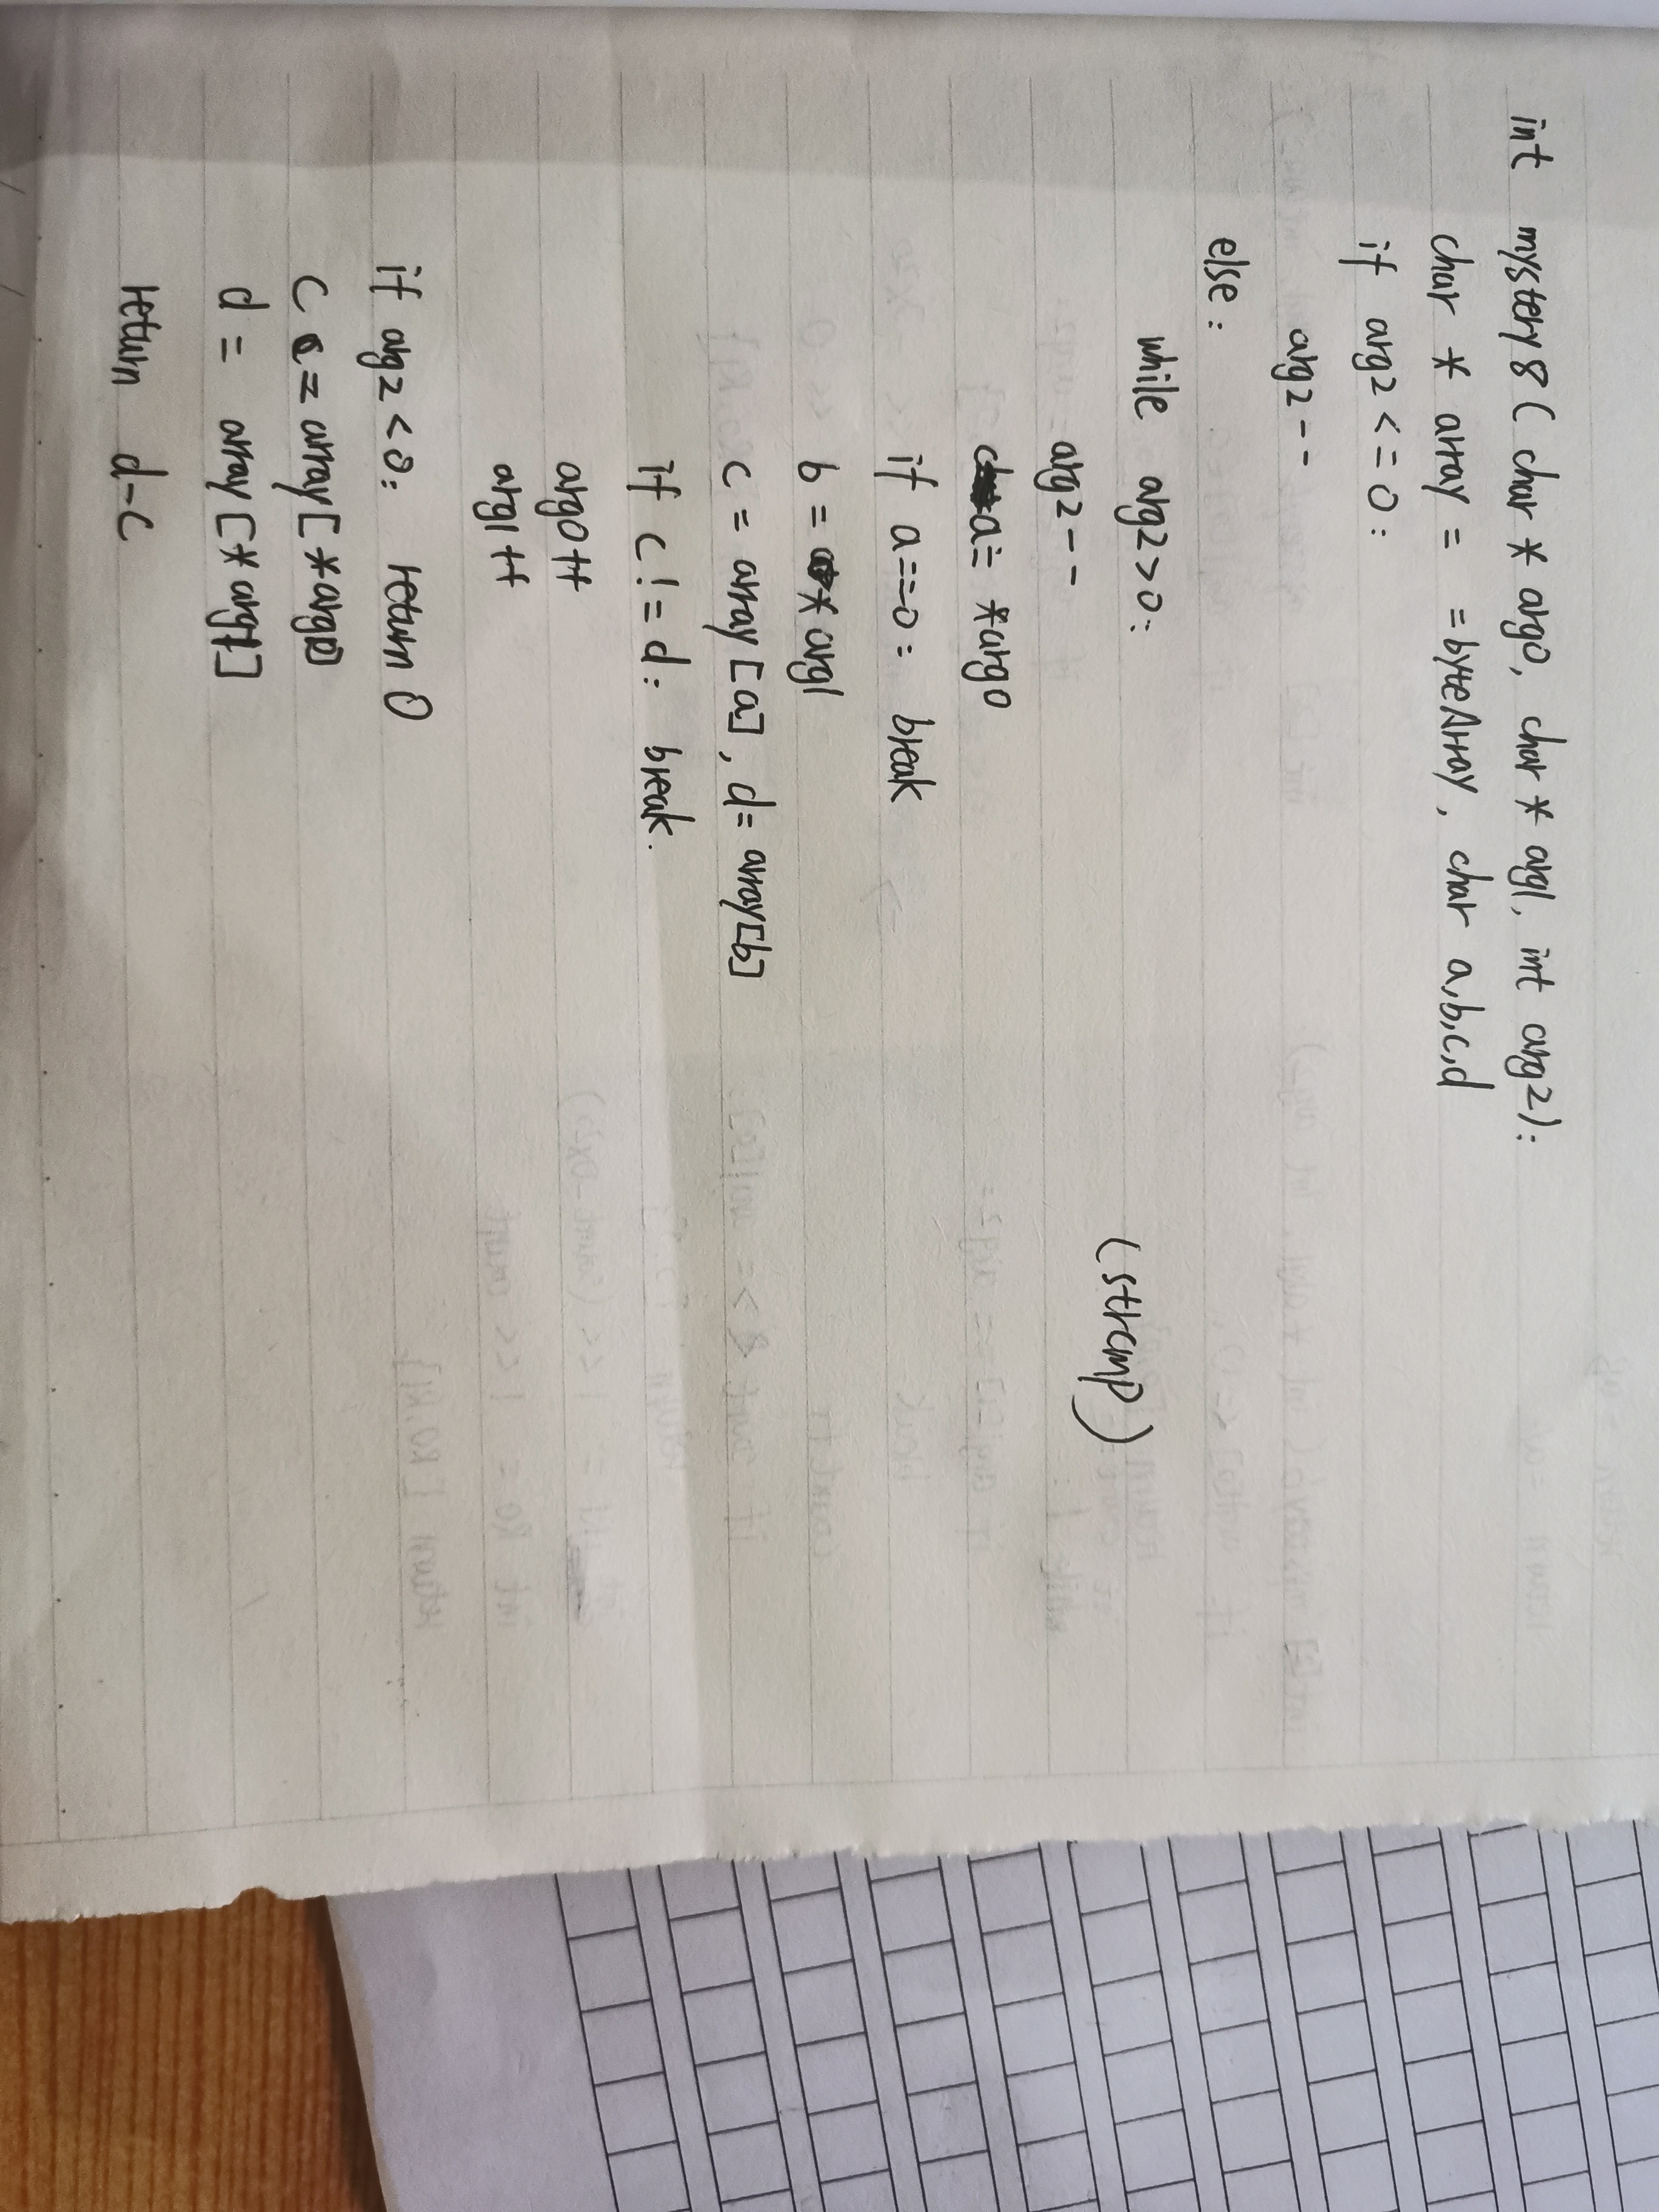 int mystery8 ( char * arg0, char * arg1, int arg2):
char * array = =byteArray, char a,b,c,d
if arg2 <= 0:
arg2--
else:
while arg2>0:
(strcmp)
arg2--
a= *arg0
if a==0: break
b = * arg1
c = array [a], d= array[b]
if c != d: break.
arg0++
arg1++
if arg2 <0: return 0
c = array[ *arg0]
d = array [* arg1]
return d-c